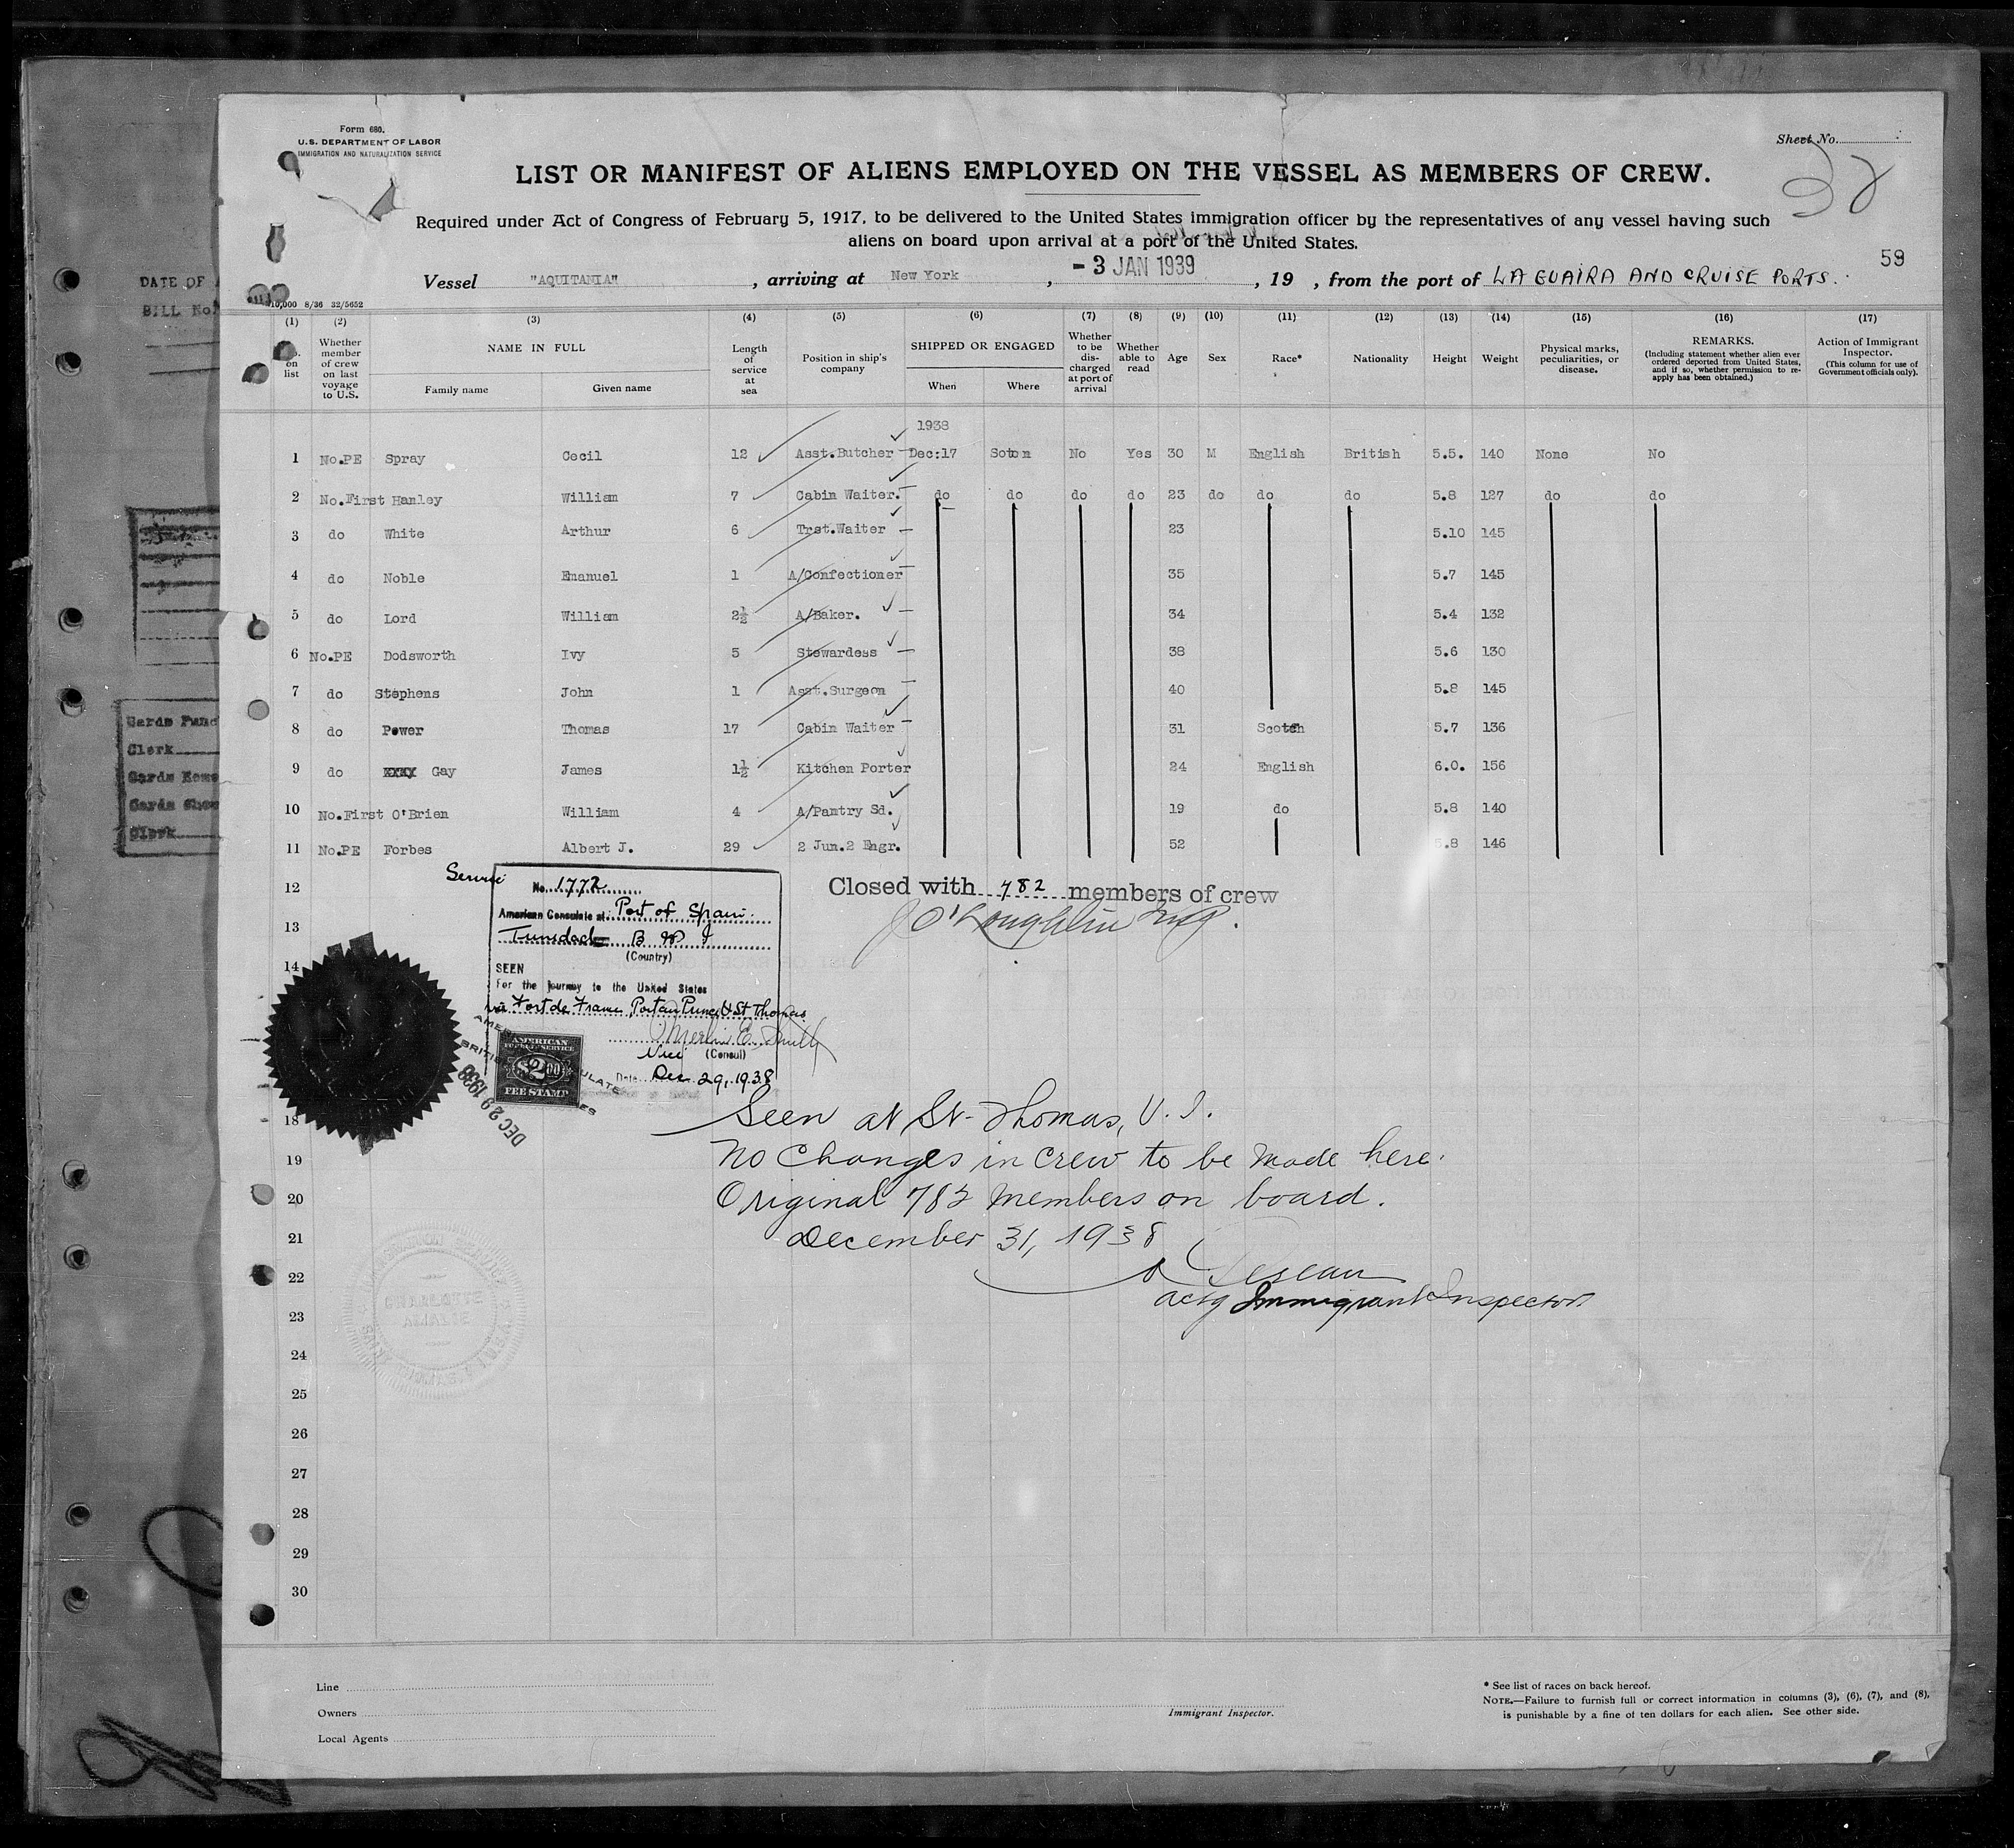 Form 680.
U.S. DEPARTMENT OF LABOR
IMMIGRATION AND NATURALIZATION SERVICE
Sheet No.
LIST OR MANIFEST OF ALIENS EMPLOYED ON THE VESSEL AS MEMBERS OF CREW.
Required under Act of Congress of February 5, 1917, to be delivered to the United States immigration officer by the representatives of any vessel having such
aliens on board upon arrival at a port of the United States.
59
Vessel "AQUITANIA", arriving at New York, - 3 JAN 1939, 19 , from the port of LA GUAIRA AND CRUISE PORTS.
10,000 8/36 32/5652
(1) (2) (3) (4) (5) (6) (7) (8) (9) (10) (11) (12) (13) (14) (15) (16) (17)
on list
Whether member of crew on last voyage to U.S.
NAME IN FULL
Family name Given name
Length of service at sea
Position in ship's company
SHIPPED OR ENGAGED
When Where
Whether to be discharged at port of arrival
Whether able to read
Age Sex Race* Nationality Height Weight
Physical marks, peculiarities, or disease.
REMARKS.
(Including statement whether alien ever ordered deported from United States, and if so, whether permission to re-apply has been obtained.)
Action of Immigrant Inspector.
(This column for use of Government officials only).
1938
1 No.PE Spray Cecil 12 Asst.Butcher Dec:17 Soton No Yes 30 M English British 5.5. 140 None No
2 No.First Hanley William 7 Cabin Waiter. do do do do 23 do do do 5.8 127 do do
3 do White Arthur 6 Trst.Waiter 23 5.10 145
4 do Noble Emanuel 1 A/Confectioner 35 5.7 145
5 do Lord William 2½ A/Baker. 34 5.4 132
6 No.PE Dodsworth Ivy 5 Stewardess 38 5.6 130
7 do Stephens John 1 Asst.Surgeon 40 5.8 145
8 do Power Thomas 17 Cabin Waiter 31 Scotch 5.7 136
9 do Gay James 1½ Kitchen Porter 24 English 6.0. 156
10 No.First O'Brien William 4 A/Pantry Sd. 19 do 5.8 140
11 No.PE Forbes Albert J. 29 2 Jun.2 Engr. 52 5.8 146
12
13
14
18
19
20
21
22
23
24
25
26
27
28
29
30
Closed with 782 members of crew
J O'Loughlin
Service
No. 1772
American Consulate at Port of Spain
Trinidad B W I
(Country)
SEEN
For the journey to the United States
via Fort de France Port au Prince & St Thomas
Merlin E. Smith
Vice (Consul)
Date Dec 29, 1938
AMERICAN
FOREIGN SERVICE
$2.00
FEE STAMP
DEC 29 1938
Seen at St. Thomas, V. I.
No changes in crew to be made here.
Original 782 members on board.
December 31, 1938
actg Immigrant Inspector
CHARLOTTE
AMALIE
Line
Owners
Local Agents
Immigrant Inspector.
* See list of races on back hereof.
NOTE.—Failure to furnish full or correct information in columns (3), (6), (7), and (8),
is punishable by a fine of ten dollars for each alien. See other side.
DATE OF
BILL No.
Cards Punc
Clerk
Cards
Cards
Clerk